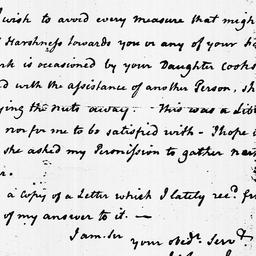 wish to avoid every measure that migh
Harshness towards you or any of your
rk is occasioned by your Daughter
d with the assistance of another Person, sh
ying the nuts away. - This was a
nor for me to be satisfied with - I hope
she asked my Permission to gather
r.
a Copy of a Letter which I lately rec.d fr
of my answer to it. —
I am Sir
your obed.t Serv.t